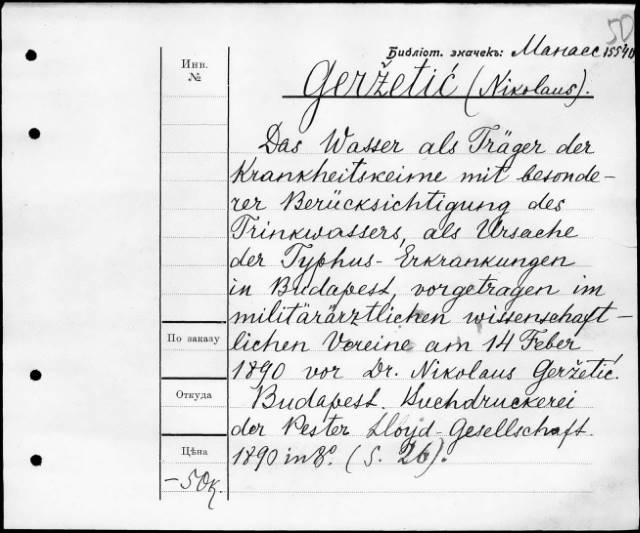 50
Библіот. значекъ: Манасс 15540
Инв.
№
Geržetić (Nikolaus).
Das Wasser als Träger der
Krankheitskeime mit besonde-
rer Berücksichtigung des
Trinkwassers, als Ursache
der Typhus-Erkrankungen
in Budapest, vorgetragen im
militärärztlichen wissenschaft-
lichen Vereine am 14 Feber
1890 vor Dr. Nikolaus Geržetić.
Budapest. Buchdruckerei
der Pester Lloyd-Gesellschaft.
1890 in 8º. (S. 26).
По заказу
Откуда
Цѣна
-50к.